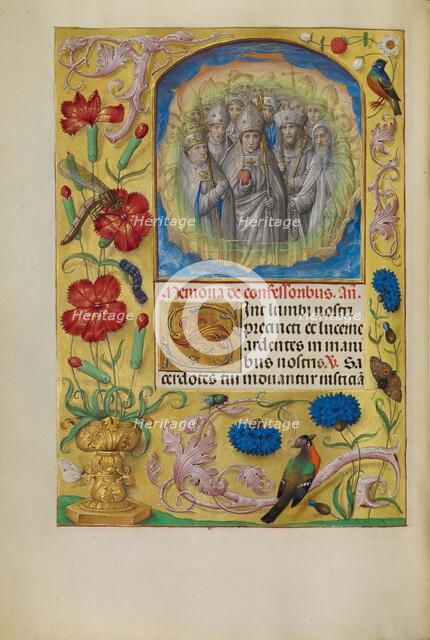 Memoria de confessoribus. An̄.
Sint lumbi nostri
precincti et lucerne
ardentes in mani
bus nostris. V. Sa
cerdotes tui induantur iusticiā
Heritage
Heritage
Heritage
Heritage
Heritage
Heritage
Heritage
Heritage